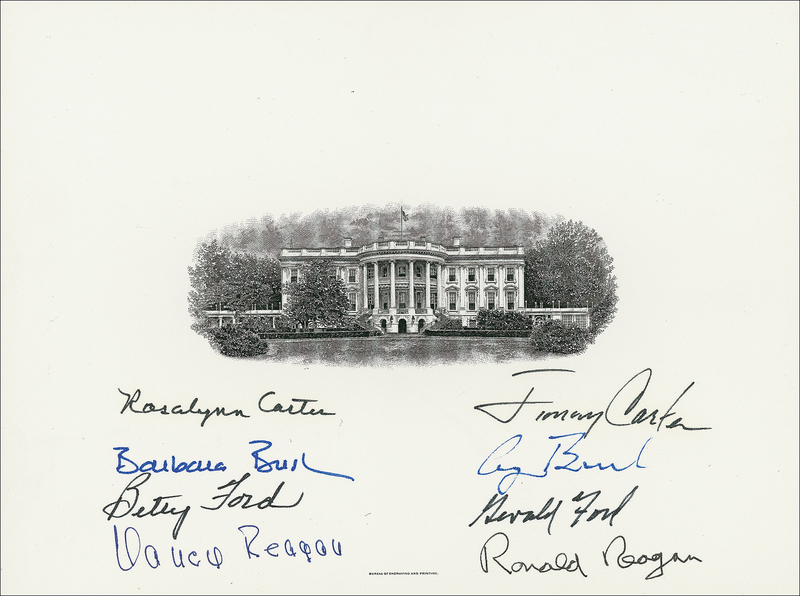 Rosalynn Carter
Jimmy Carter
Barbara Bush
G Bush
Betty Ford
Gerald Ford
Nancy Reagan
Ronald Reagan
BUREAU OF ENGRAVING AND PRINTING.